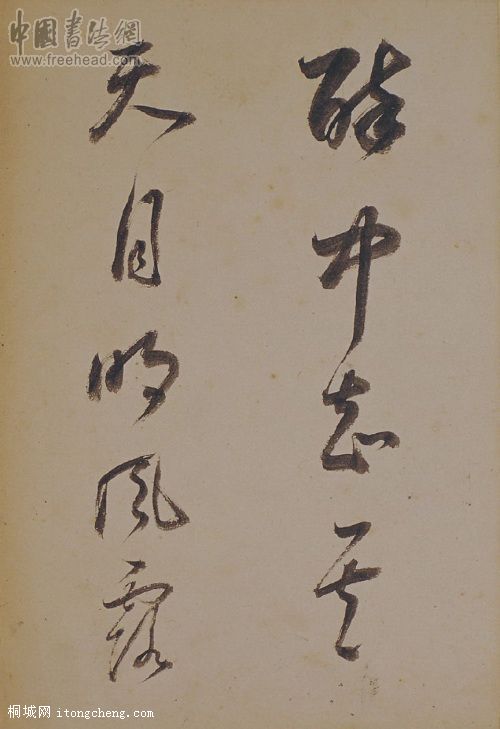 醉中知其
天月明風露
中国書法網
www.freehead.com
桐城网 itongcheng.com